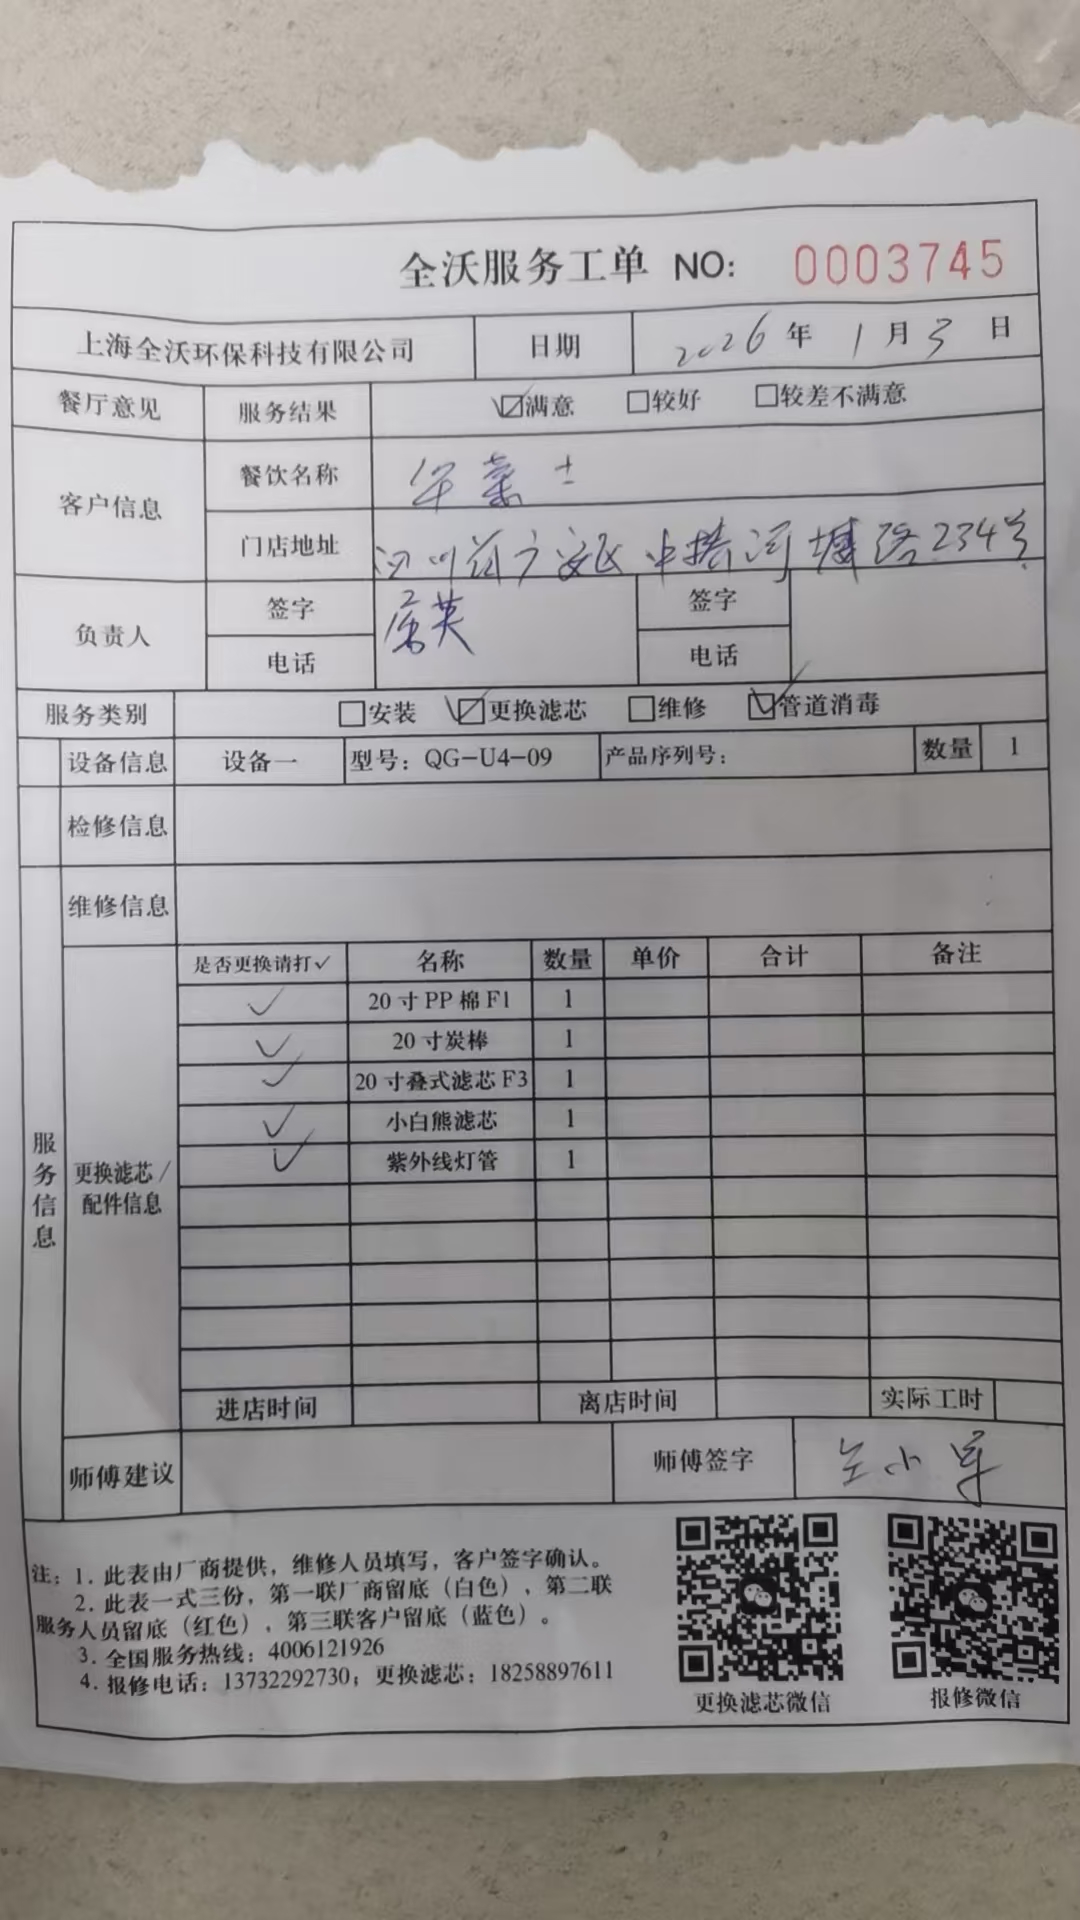 全沃服务工单 NO: 0003745
上海全沃环保科技有限公司 日期 2026年1月3日
餐厅意见 服务结果 ☑满意 □较好 □较差不满意
客户信息 餐饮名称 华莱士
门店地址 四川省广安区中桥河堰路234号
负责人 签字 英 签字
电话 电话
服务类别 □安装 ☑更换滤芯 □维修 ☑管道消毒
设备信息 设备一 型号：QG-U4-09 产品序列号： 数量 1
检修信息
维修信息
服务信息
更换滤芯/
配件信息
是否更换请打✓ 名称 数量 单价 合计 备注
✓ 20寸PP棉F1 1
✓ 20寸炭棒 1
✓ 20寸叠式滤芯F3 1
✓ 小白熊滤芯 1
✓ 紫外线灯管 1
进店时间 离店时间 实际工时
师傅建议 师傅签字 小军
注：1. 此表由厂商提供，维修人员填写，客户签字确认。
2. 此表一式三份，第一联厂商留底（白色），第二联
服务人员留底（红色），第三联客户留底（蓝色）。
3. 全国服务热线：4006121926
4. 报修电话：13732292730；更换滤芯：18258897611
更换滤芯微信 报修微信